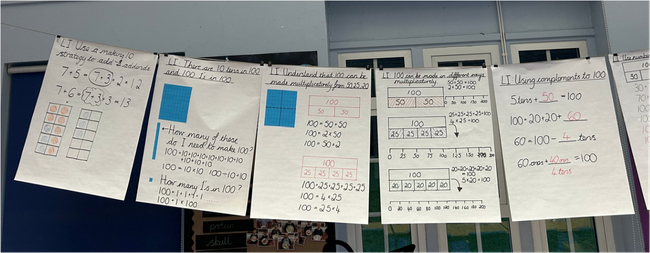 LI Use a making 10
strategy to add 3 addends
7+5=7+3+2=12
7+6=7+3+3=13
LI There are 10 tens in 100
and 100 1s in 100.
How many of these
do I need to make 100?
100=10+10+10+10+10+10+10
+10+10+10
100=10×10 100=10×10
How many 1s in 100?
100=1+1+1+1
100=1×100
LI Understand that 100 can be
made multiplicatively from 50,25,20
100
50 50
100=50+50
100=2×50
100=50×2
100
25 25 25 25
100=25+25+25+25
100=4×25
100=25×4
LI 100 can be made in different ways
multiplicatively
50+50=100
2×50=100
100
50 50
0 50 100 150 200 250 300 350 400
25+25+25+25=100
4×25=100
100
25 25 25 25
0 25 50 75 100 125 150 175 200
20+20+20+20+20
=100
5×20=100
100
20 20 20 20 20
0 20 40 60 80 100 120 140 160 180 200
LI Using complements to 100
5 tens + 50 =100
100=20+20+ 60
60=100- 4 tens
60 ones + 40 ones =100
4 tens
100
protein
skull